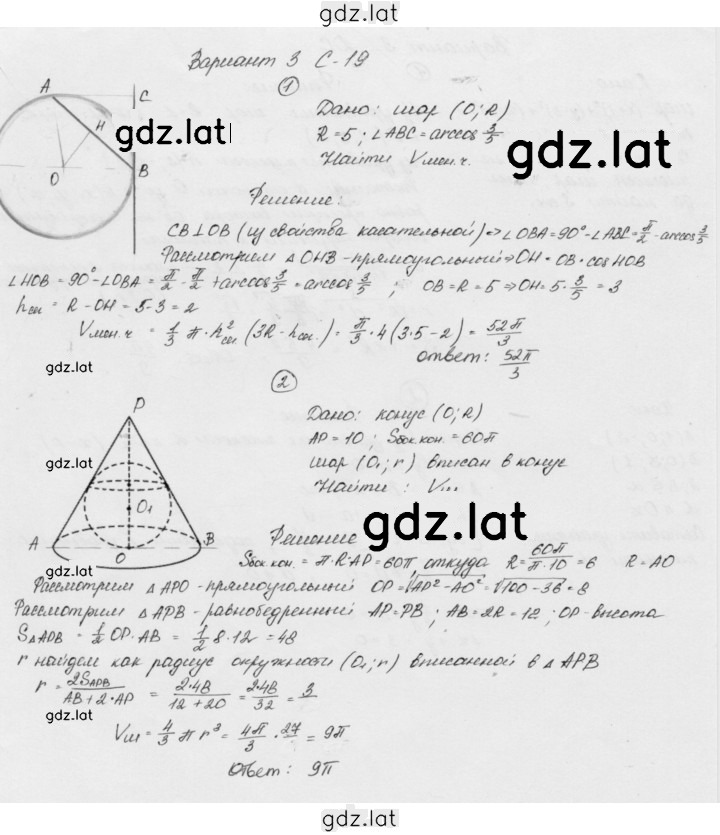 gdz.lat
Вариант 3 С-19
1
A
C
H
O
B
Дано: шар (O; R)
R = 5; ∠ABC = arccos 3/5
Найти Vмен.ч.
gdz.lat
gdz.lat
Решение:
CB⊥OB (из свойства касательной) ⇒ ∠OBA = 90° - ∠ABC = π/2 - arccos 3/5
Рассмотрим △OHB - прямоугольный ⇒ OH = OB · cos HOB
∠HOB = 90° - ∠OBA = π/2 - π/2 + arccos 3/5 = arccos 3/5 ; OB = R = 5 ⇒ OH = 5 · 3/5 = 3
hсег = R - OH = 5 - 3 = 2
Vмен.ч = 1/3 π · h²сег (3R - hсег.) = π/3 · 4 (3·5 - 2) = 52π/3
ответ: 52π/3
gdz.lat
2
P
O₁
A
O
B
gdz.lat
Дано: конус (O; R)
AP = 10 ; Sбок.кон. = 60π
шар (O₁; r) вписан в конус
Найти : V
gdz.lat
Решение
Sбок.кон. = π·R·AP = 60π, откуда R = 60π/π·10 = 6 R = AO
Рассмотрим △APO - прямоугольный OP = √AP² - AO² = √100 - 36 = 8
Рассмотрим △APB - равнобедренный AP = PB ; AB = 2R = 12 ; OP - высота
S△APB = 1/2 OP · AB = 1/2 8 · 12 = 48
r найдем как радиус окружности (O₁; r) вписанной в △APB
r = 2SAPB/AB + 2·AP = 2·48/12 + 20 = 2·48/32 = 3
Vш = 4/3 π r³ = 4π/3 · 27 = 9π
Ответ: 9π
gdz.lat
gdz.lat